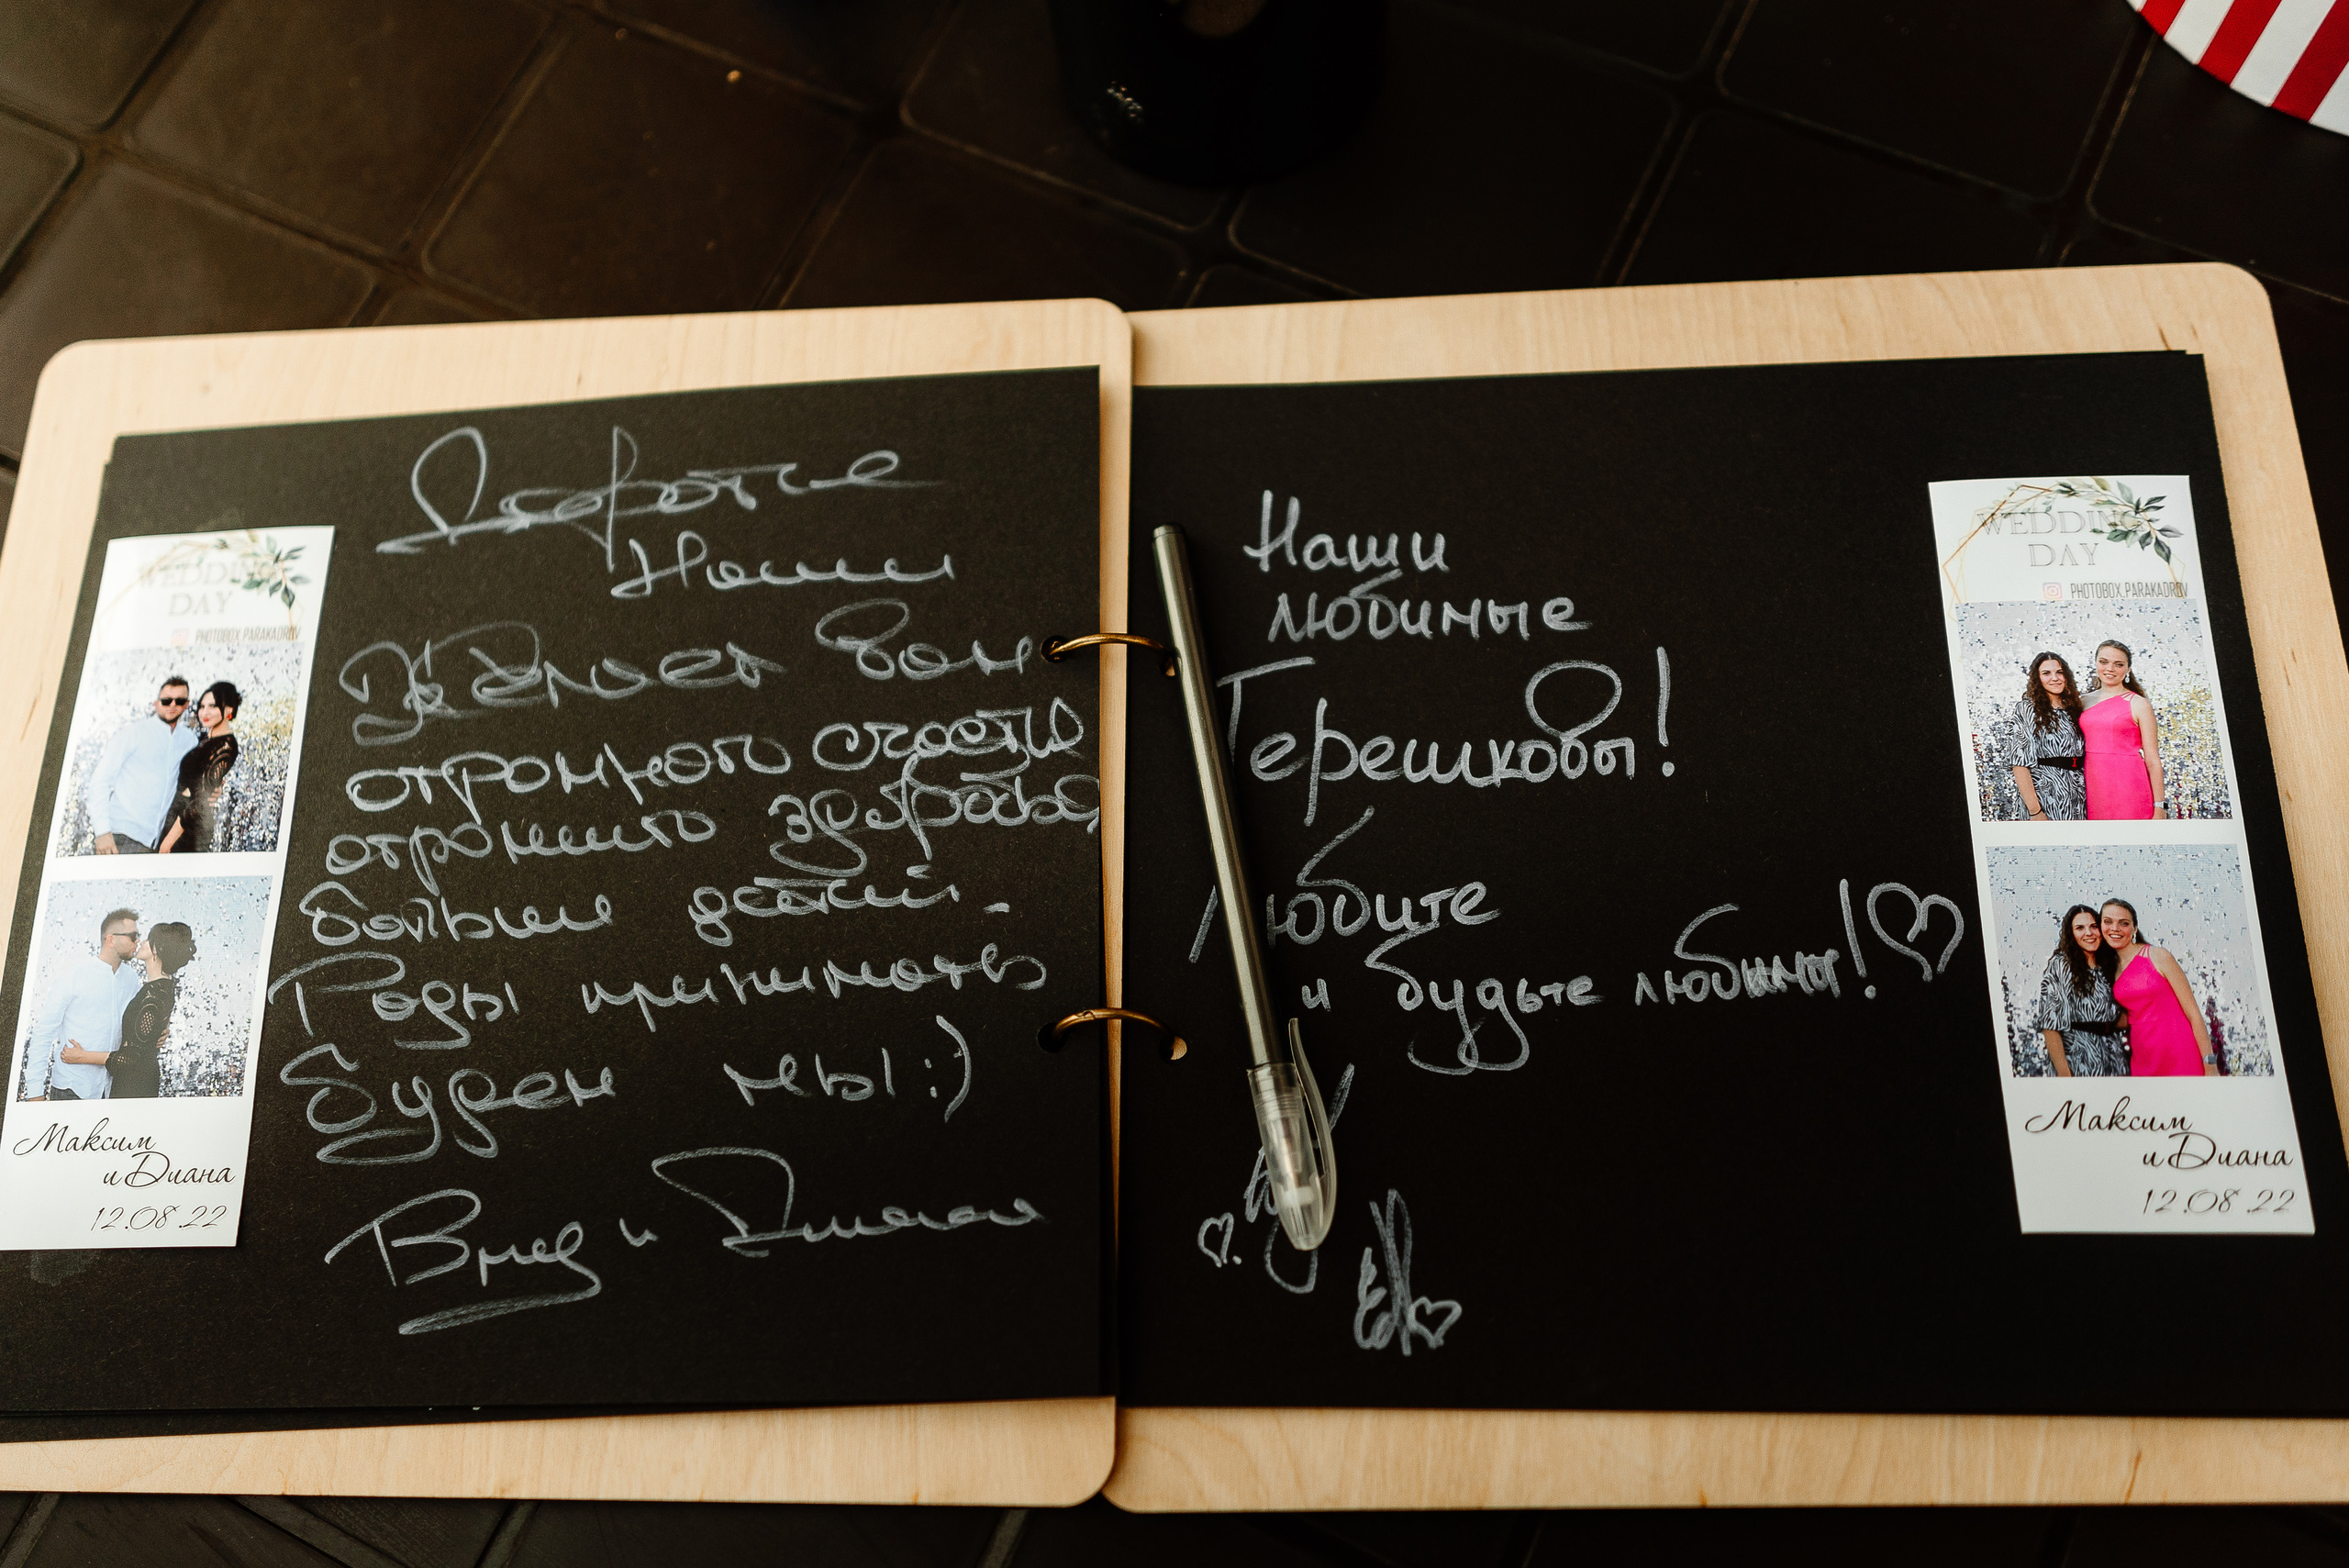 Дорогие
Наши
Желает Вам
огромного счастья
огромного здоровья,
больше детей.
Роды принимать
будем мы :)
Влад и Диана
WEDDING
DAY
PHOTOBOX.PARAKADROV
Максим
и Диана
12.08.22
Наши
любимые
Терешковы!
Любите
и будьте любимы!
WEDDING
DAY
PHOTOBOX.PARAKADROV
Максим
и Диана
12.08.22